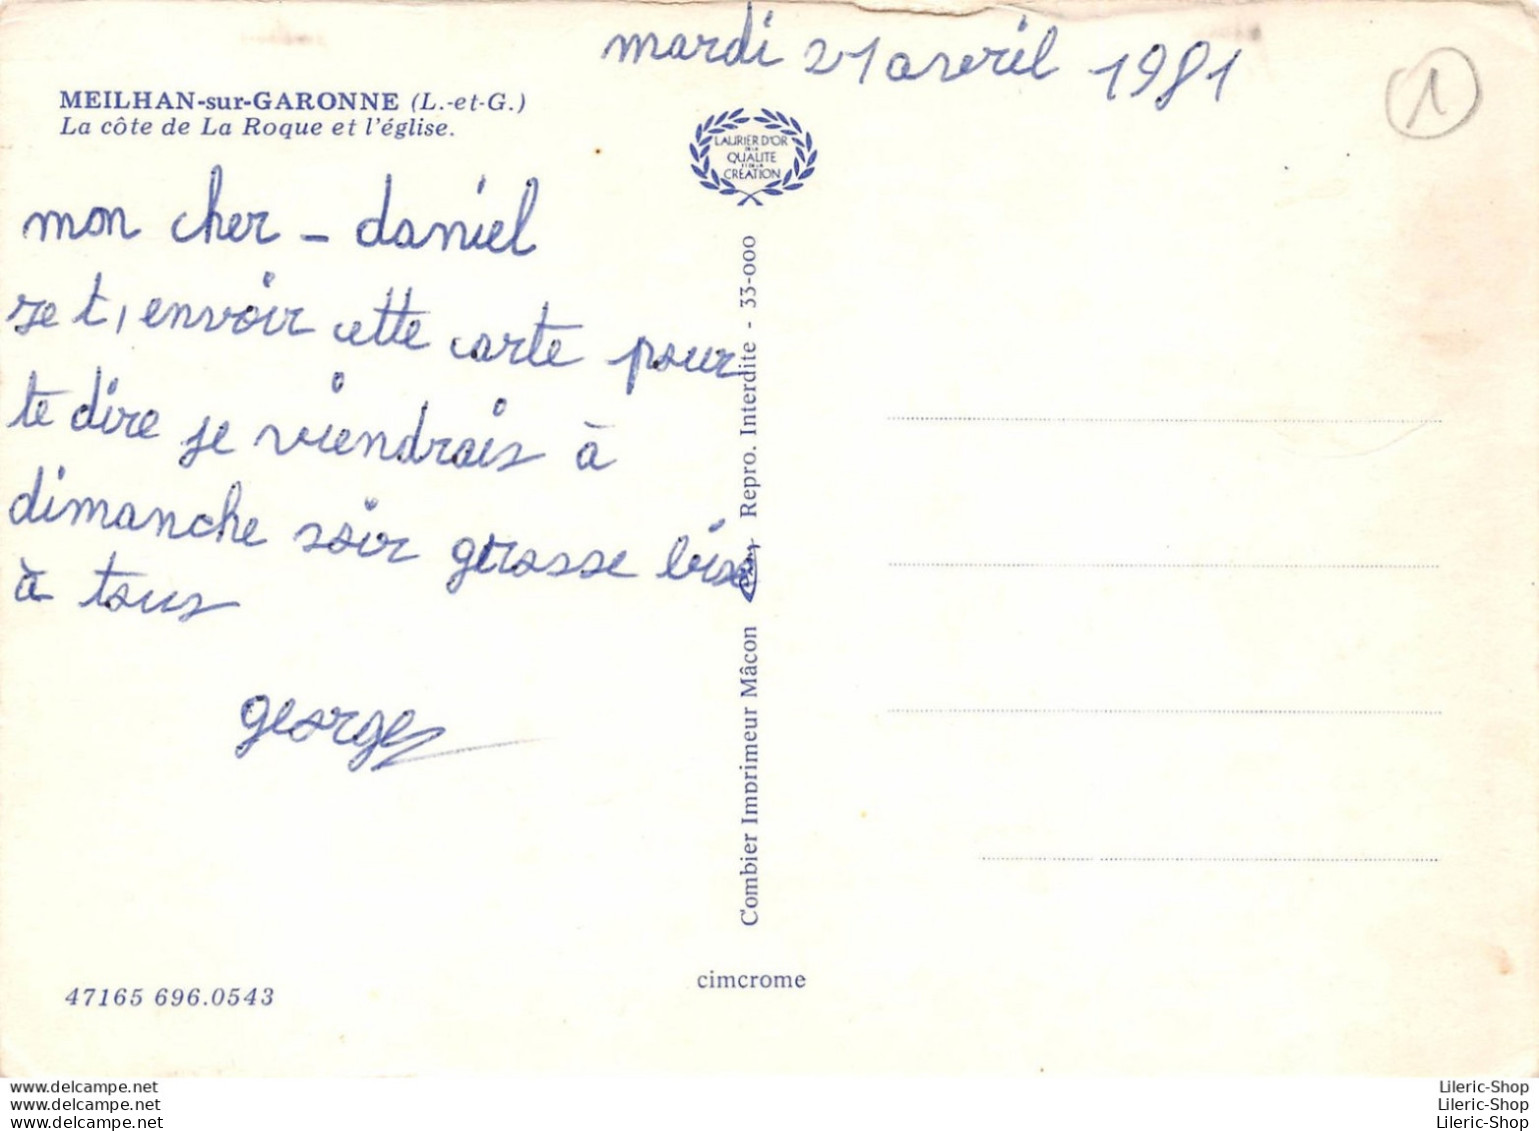 mardi 21 avril 1981
1
MEILHAN-sur-GARONNE (L.-et-G.)
La côte de La Roque et l'église.
LAURIER D'OR
DE LA
QUALITE
ET DE LA
CRÉATION
mon cher - daniel
je t, envoir cette carte pour
te dire je viendrais à
dimanche soir grosse bise
à tous
george
Combier Imprimeur Mâcon
Repro. Interdite - 33-000
cimcrome
47165 696.0543
www.delcampe.net
www.delcampe.net
www.delcampe.net
Lileric-Shop
Lileric-Shop
Lileric-Shop